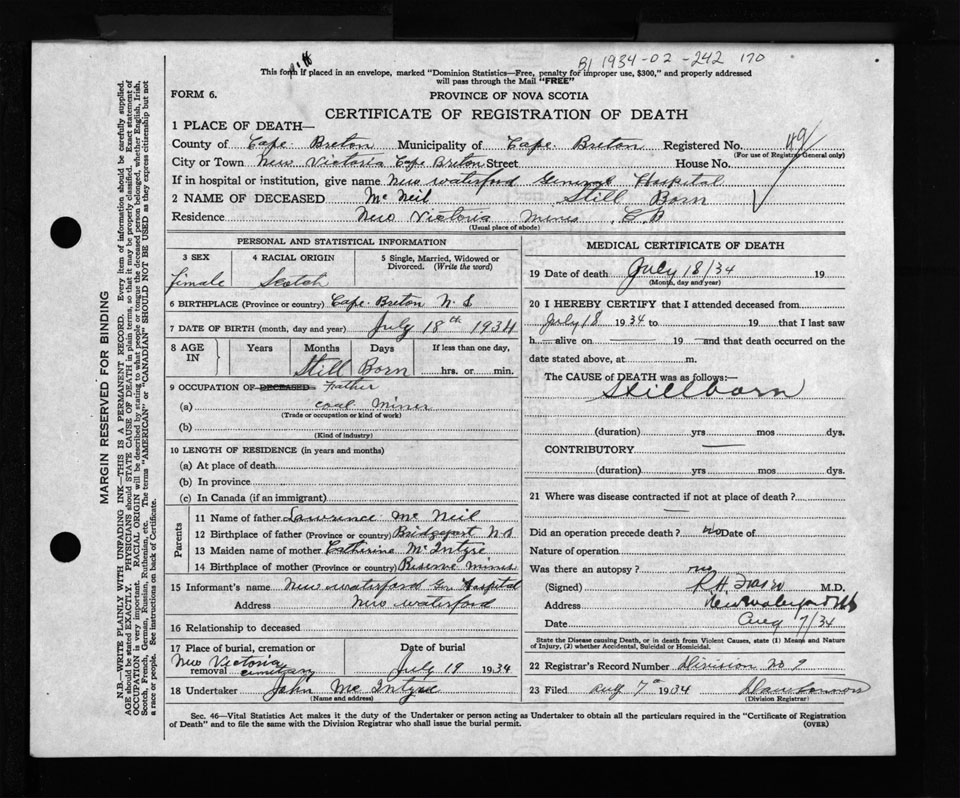 B1 1934-02-242 170
This form if placed in an envelope, marked "Dominion Statistics—Free, penalty for improper use, $300," and properly addressed
will pass through the Mail "FREE"
FORM 6.
PROVINCE OF NOVA SCOTIA
CERTIFICATE OF REGISTRATION OF DEATH
1 PLACE OF DEATH—
County of Cape Breton Municipality of Cape Breton Registered No.
(For use of Registrar General only)
City or Town New Victoria Cape Breton Street House No.
If in hospital or institution, give name New Waterford General Hospital
2 NAME OF DECEASED Mc Neil Still Born
Residence New Victoria Mines C.B
(Usual place of abode)
PERSONAL AND STATISTICAL INFORMATION
3 SEX 4 RACIAL ORIGIN 5 Single, Married, Widowed or
Divorced. (Write the word)
female Scotch
6 BIRTHPLACE (Province or country) Cape Breton N.S
7 DATE OF BIRTH (month, day and year) July 18th 1934
8 AGE IN Years Months Days If less than one day,
Still Born hrs. or min.
9 OCCUPATION OF DECEASED Father
(a) coal Miner
(Trade or occupation or kind of work)
(b)
(Kind of industry)
10 LENGTH OF RESIDENCE (in years and months)
(a) At place of death
(b) In province
(c) In Canada (if an immigrant)
Parents
11 Name of father Lawrence Mc Neil
12 Birthplace of father (Province or country) Bridgeport N.S
13 Maiden name of mother Catherine McIntyre
14 Birthplace of mother (Province or country) Reserve Mines
15 Informant's name New Waterford Gen Hospital
Address New Waterford
16 Relationship to deceased
17 Place of burial, cremation or removal Date of burial
New Victoria cemetary July 19 1934
18 Undertaker John McIntyre
(Name and address)
MEDICAL CERTIFICATE OF DEATH
19 Date of death July 18/34 19
(Month, day and year)
20 I HEREBY CERTIFY that I attended deceased from
July 18 1934 to 19 that I last saw
h alive on 19 and that death occurred on the
date stated above, at m.
The CAUSE of DEATH was as follows:
Stillborn
(duration) yrs mos dys.
CONTRIBUTORY
(duration) yrs mos dys.
21 Where was disease contracted if not at place of death?
Did an operation precede death? no Date of
Nature of operation
Was there an autopsy? no
(Signed) M.D.
Address New Waterford NS
Date Aug 7/34
State the Disease causing Death, or in death from Violent Causes, state (1) Means and Nature
of Injury, (2) whether Accidental, Suicidal or Homicidal.
22 Registrar's Record Number Division No 9
23 Filed Aug 7th 1934
(Division Registrar)
Sec. 46—Vital Statistics Act makes it the duty of the Undertaker or person acting as Undertaker to obtain all the particulars required in the "Certificate of Registration
of Death" and to file the same with the Division Registrar who shall issue the burial permit. (OVER)
MARGIN RESERVED FOR BINDING
N.B.—WRITE PLAINLY WITH UNFADING INK—THIS IS A PERMANENT RECORD. Every item of information should be carefully supplied.
AGE should be stated EXACTLY. PHYSICIANS should STATE CAUSE OF DEATH in plain terms, so that it may be properly classified. Exact statement of
OCCUPATION is very important. RACIAL ORIGIN will be described by stating to what people or tongue the deceased person belonged, whether English, Irish,
Scotch, French, German, Russian, Ruthenian, etc. The terms "AMERICAN" or "CANADIAN" SHOULD NOT BE USED as they express citizenship but not
a race or people. See instructions on back of Certificate.